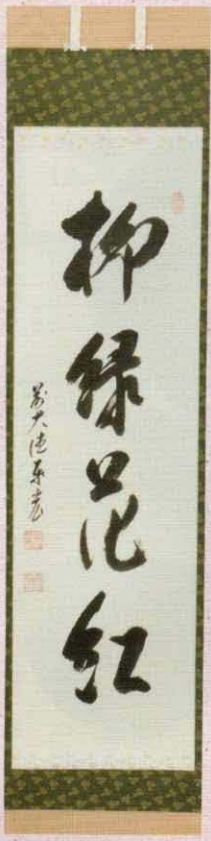 柳緑花紅
前大徳